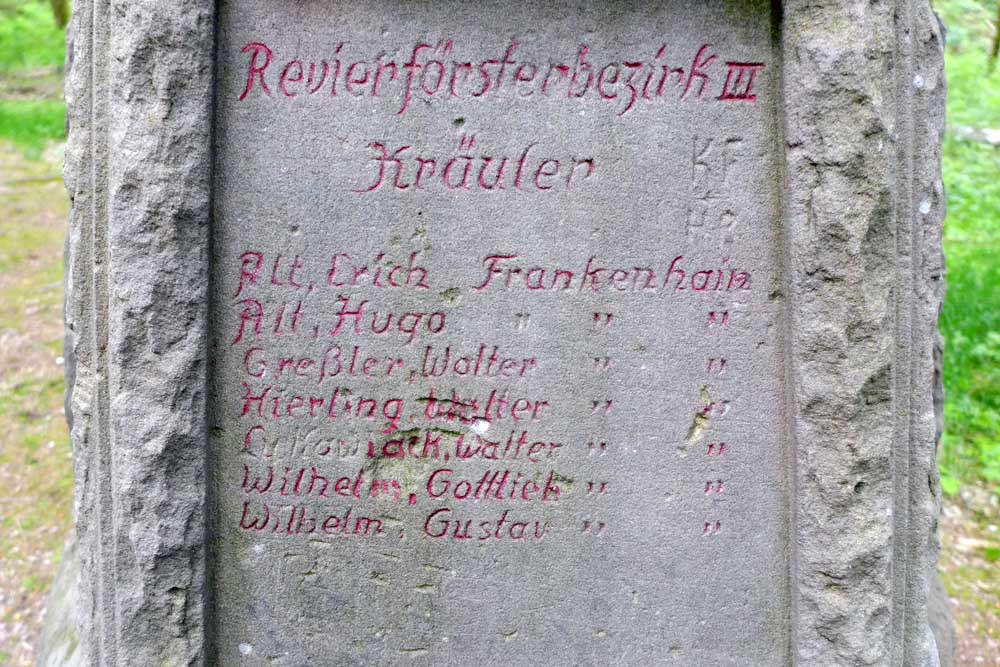 Revierförsterbezirk III
Kräuler KF
HR
Alt, Erich Frankenhain
Alt, Hugo " " "
Greßler, Walter " "
Hierling, Walter " "
Lukowiack, Walter " "
Wilhelm, Gottlieb " "
Wilhelm, Gustav " "